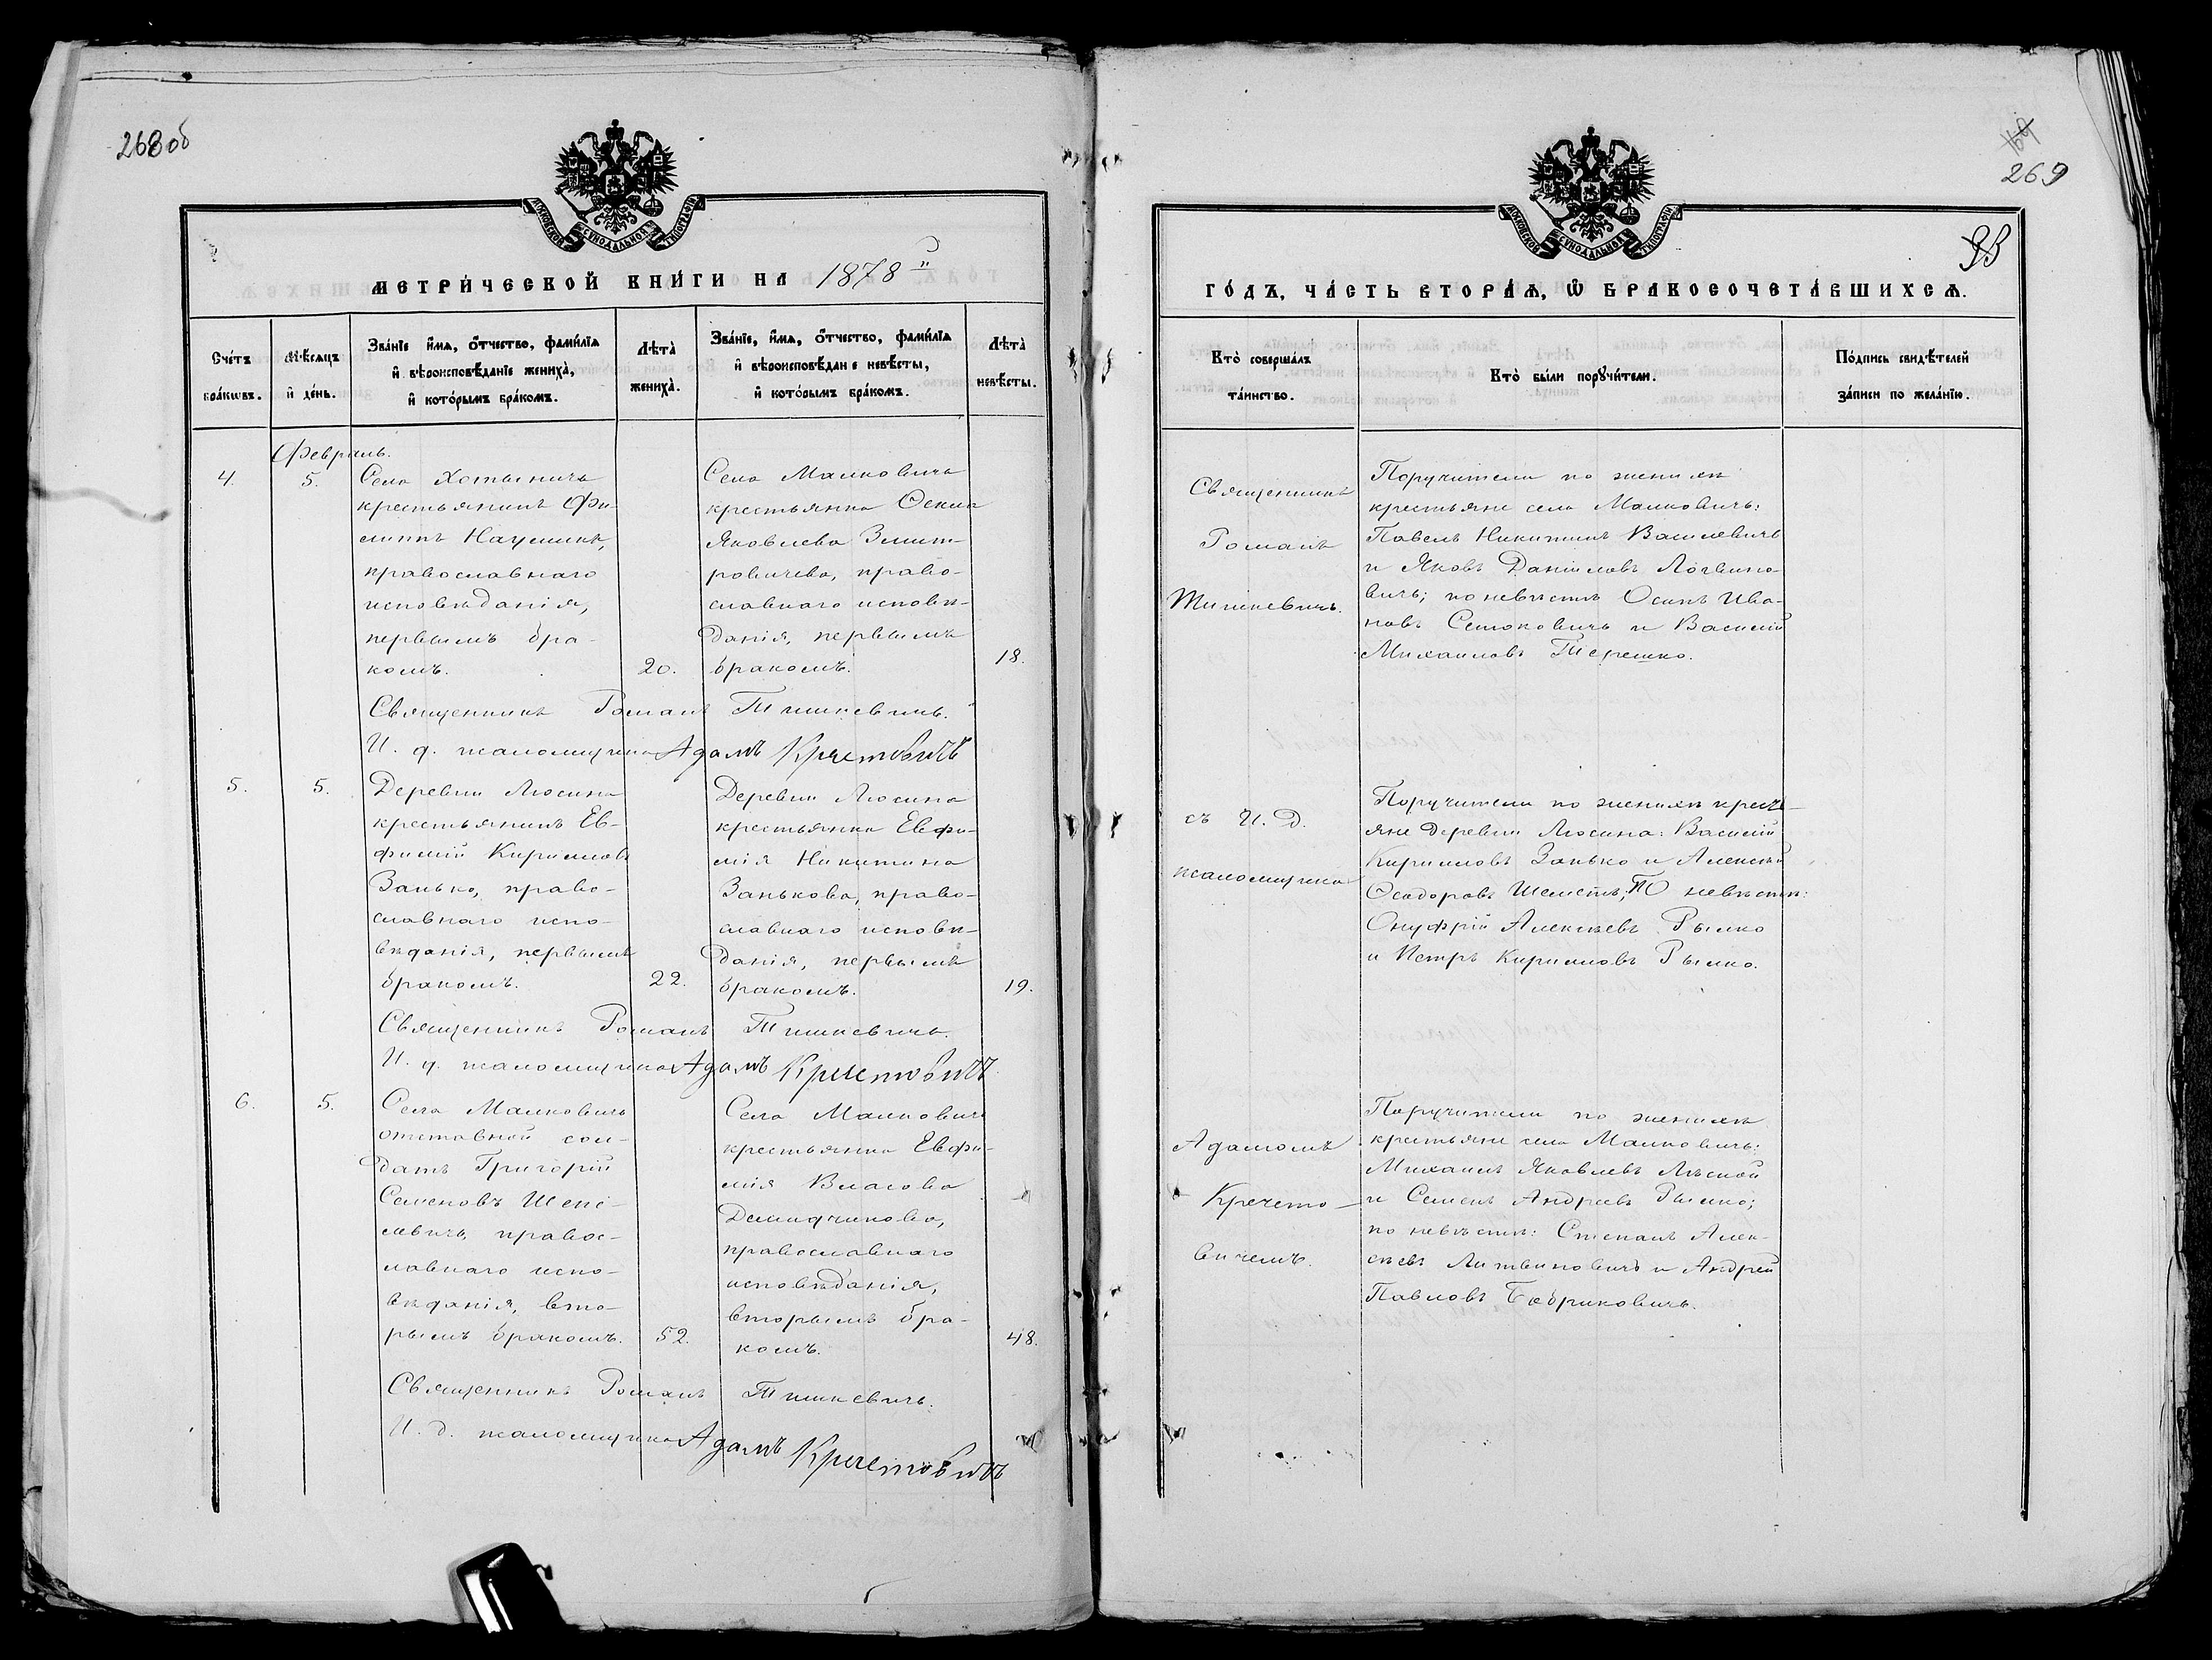 268об
МОСКОВСКОЙ СУНОДАЛЬНОЙ ТИПОГРАФІИ
МЕТРИ́ЧЕСКОЙ КНИ́ГИ НА 1878 й
Сче́тъ бра́кωвъ.
Мѣ́сяцъ и҆ де́нь.
Зва́нїе и҆́мѧ, ѻ҆́тчество, фами́лїѧ
и҆ вѣроисповѣ́данїе жениха̀,
и҆ кото́рымъ бра́комъ.
Лѣта̀ жениха̀.
Зва́нїе, и҆́мѧ, ѻ҆́тчество, фами́лїѧ
и҆ вѣроисповѣ́дан е невѣ́сты,
и҆ кото́рымъ бра́комъ.
Лѣта̀ невѣ́сты.
Февраль.
4. 5.
Села Хотыничъ
крестьянинъ Фи-
липпъ Наумикъ,
православнаго
исповѣданія,
первымъ бра-
комъ.
20.
Села Малковичъ
крестьянка
Яковлева Змит-
ровичева, право-
славнаго исповѣ-
данія, первымъ
бракомъ.
18.
Священникъ Романъ Тышкевичъ.
И. д. псаломщика Адамъ Кречетовичъ
5. 5.
Деревни Люсина
крестьянинъ Ев-
фимій Кирилловъ
Занько, право-
славнаго испо-
вѣданія, первымъ
бракомъ.
22.
Деревни Люсина
крестьянка Евфи-
мія Никитина
Занькова, право-
славнаго исповѣ-
данія, первымъ
бракомъ.
19.
Священникъ Романъ Тышкевичъ.
И. д. псаломщика Адамъ Кречетовичъ
6. 5.
Села Малковичъ
отставной сол-
датъ Григорій
Семеновъ Шепе-
левичъ, правос-
лавнаго испо-
вѣданія, вто-
рымъ бракомъ.
52.
Села Малковичъ
крестьянка Евфи-
мія Власова
Демидчикова,
православнаго
исповѣданія,
вторымъ бра-
комъ.
48.
Священникъ Романъ Тышкевичъ.
И. д. псаломщика Адамъ Кречетовичъ
269
МОСКОВСКОЙ СУНОДАЛЬНОЙ ТИПОГРАФІИ
ГО́ДЪ, ЧА́СТЬ ВТОРА́Ѧ, Ѡ҆ БРАКОСОЧЕТА́ВШИХСѦ.
Кто̀ соверша́лъ
та́инство.
Кто̀ бы́ли порꙋчи́тели.
По́дпись свидѣ́телей
за́писи по жела́нїю.
Священникъ
Романъ
Тышкевичъ.
Поручители по женихѣ
крестьяне села Малковичъ:
Павелъ Никитинъ Василевичъ
и Яковъ Даніиловъ Логвино-
вичъ; по невѣстѣ Осипъ Ива-
новъ Семоковичъ и Василій
Михаиловъ Терешко.
съ И. Д.
псаломщика
Поручители по женихѣ кресть-
яне деревни Люсина: Василій
Кирилловъ Занько и Алексѣй
Ѳеодоровъ Шелестъ; По невѣстѣ:
Онуфрій Алексѣевъ Рымко
и Петръ Кирилловъ Рымко.
Адамомъ
Кречето-
вичемъ.
Поручители по женихѣ
крестьяне села Малковичъ:
Михаилъ Яковлевъ Лѣсной
и Семенъ Андреевъ Рымко;
по невѣстѣ: Степанъ Алек-
сѣевъ Литвиновичъ и Андрей
Павловъ Бобриковичъ.